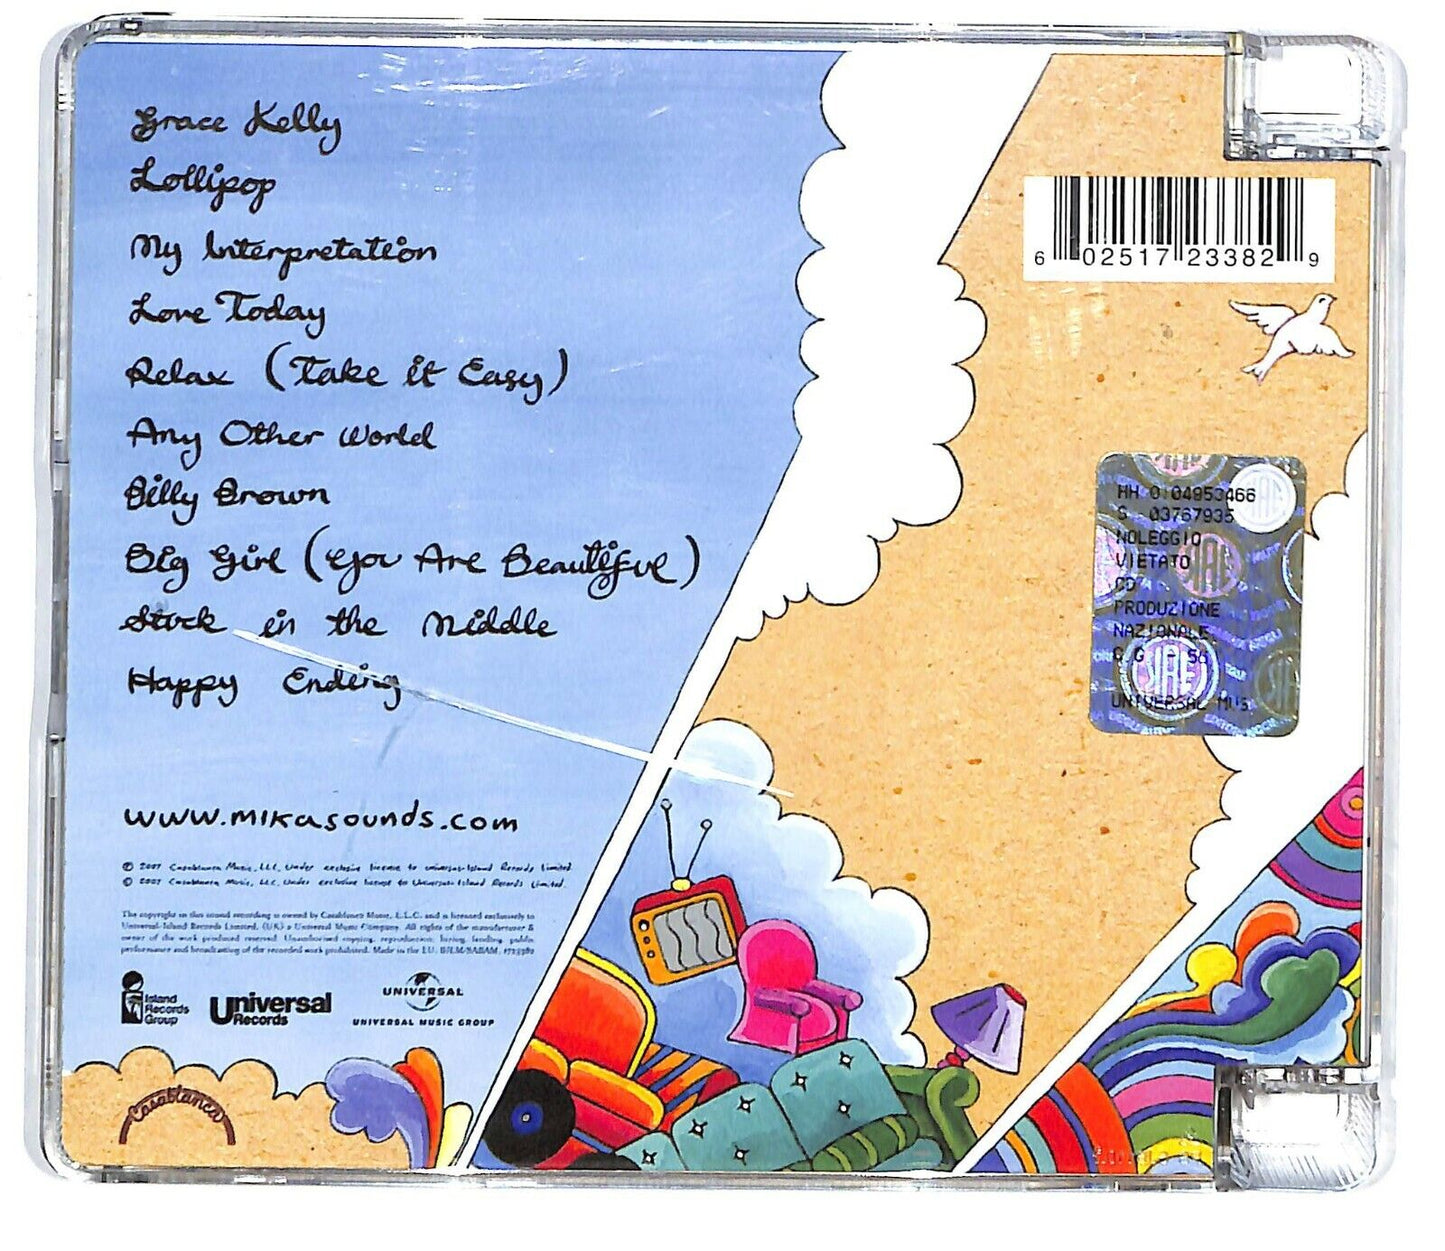 Grace Kelly
Lollipop
My Interpretation
Love Today
Relax (Take it Easy)
Any Other World
Billy Brown
Big Girl (You Are Beautiful)
Stuck in the Middle
Happy Ending
www.mikasounds.com
℗ 2007 Casablanca Music, LLC, under exclusive license to Universal-Island Records Limited.
© 2007 Casablanca Music, LLC, under exclusive license to Universal-Island Records Limited.
The copyright in this sound recording is owned by Casablanca Music, L.L.C. and is licensed exclusively to
Universal-Island Records Limited, (UK) a Universal Music Company. All rights of the manufacturer &
owner of the work produced reserved. Unauthorised copying, reproduction, hiring, lending, public
performance and broadcasting of the recorded work prohibited. Made in the EU. BIEM/SABAM.
Island
Records
Group
Universal
Records
UNIVERSAL
UNIVERSAL MUSIC GROUP
Casablanca
6 02517 23382 9
HH 0104953466
S 03767935
NOLEGGIO
VIETATO
CD
PRODUZIONE
NAZIONALE
56
SIAE
UNIVERSAL MUS